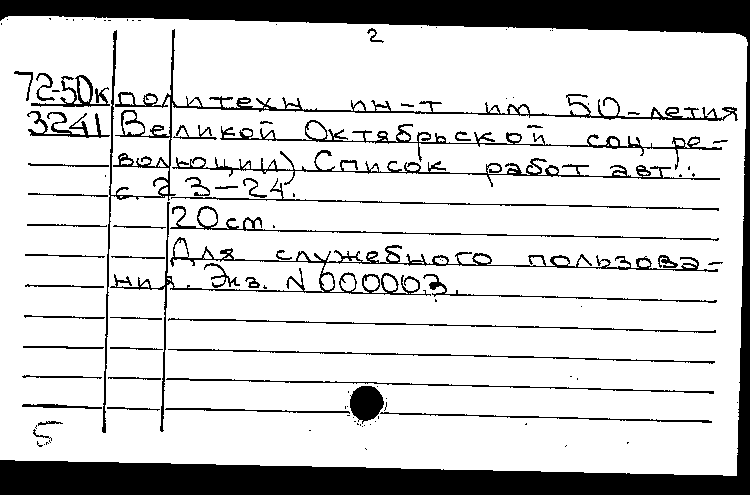 2
72-50к политехн. ин-т им 50-летия
3241 Великой Октябрьской соц. ре-
волюции). Список работ авт.:
с. 23-24.
20 cm.
Для служебного пользова-
ния. Экз. N 000003.
5